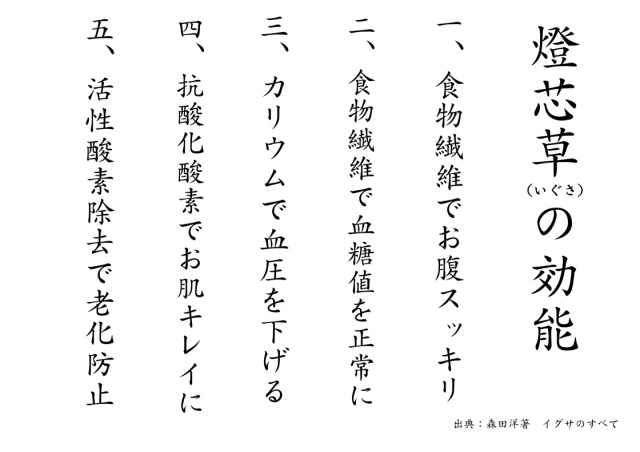 燈芯草(いぐさ)の効能
一、食物繊維でお腹スッキリ
二、食物繊維で血糖値を正常に
三、カリウムで血圧を下げる
四、抗酸化酸素でお肌キレイに
五、活性酸素除去で老化防止
出典：森田洋著　イグサのすべて